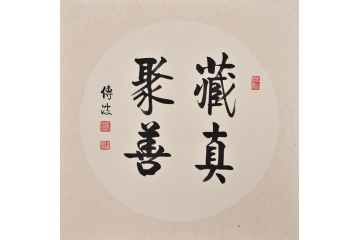 藏真
聚善
傳波